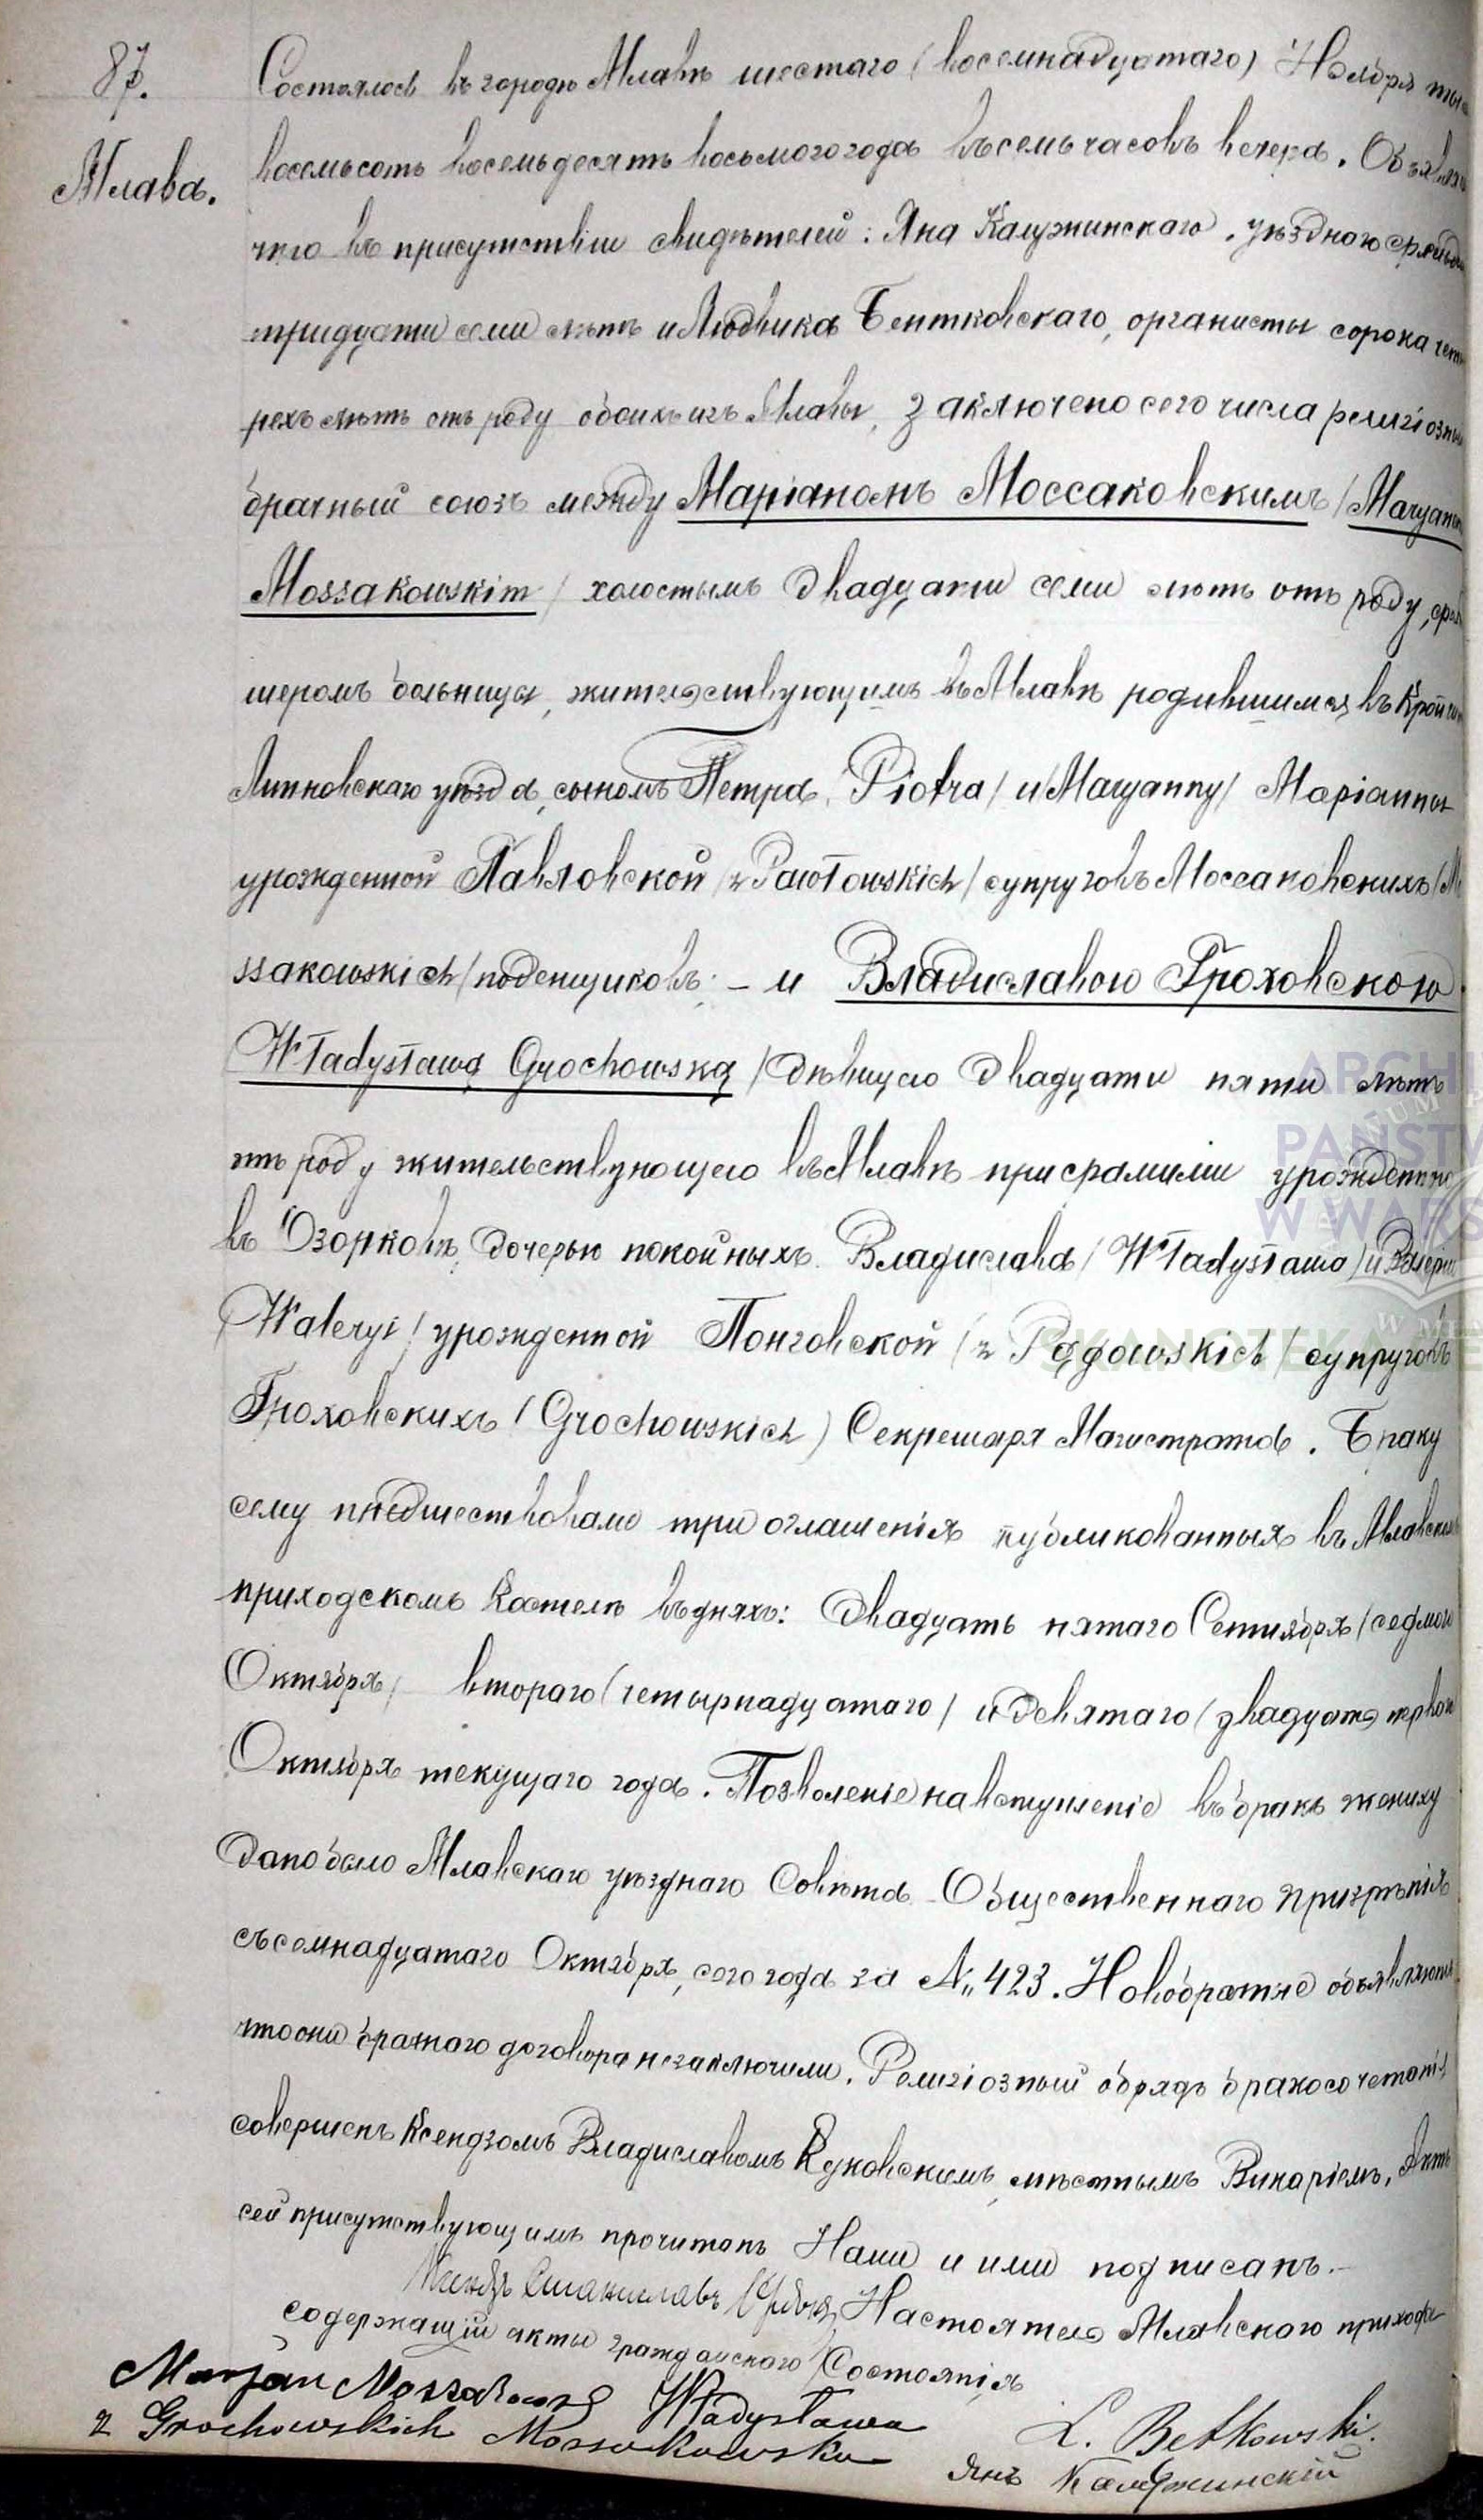 87.
Млава.
Состоялось въ городѣ Млавѣ шестаго (восемнадцатаго) Ноября
восемьсотъ восемьдесятъ восьмого года въ семь часовъ вечера.
что въ присутствіи свидѣтелей: Яна Калужинскаго, уѣзднаго
тридцати семи лѣтъ и Людвика Бентковскаго, органисты сорока чет
рехъ лѣтъ отъ роду обоихъ изъ Млавы, заключено сего числа религіозный
брачный союзъ между Маріаномъ Моссаковскимъ (Maryanem
Mossakowskim) холостымъ двадцати семи лѣтъ отъ роду, фель
шеромъ больницы, жительствующимъ въ Млавѣ родившимся въ
Липновскаго уѣзда, сыномъ Петра (Piotra) и (Maryanny) Маріанны
урожденной Павловской (z Pawłowskich) супруговъ Моссаковскихъ (Mo
ssakowskich) поденщиковъ; – и Владиславою Гроховскою
Władysławą Grochowską) дѣвицею двадцати пяти лѣтъ
отъ роду жительствующею въ Млавѣ при фамиліи урожденною
въ Озорковѣ, дочерью покойныхъ Владислава (Władysława) и Валеріи
Waleryi) урожденной Понговской (z Pągowskich) супруговъ
Гроховскихъ (Grochowskich) Секретаря Магистрата. Браку
сему предшествовали три оглашенія публикованныя въ Млавскомъ
приходскомъ костелѣ въ дняхъ: двадцать пятаго Сентября (седмого
Октября) второго (четырнадцатаго) и девятаго (двадцать перваго
Октября текущаго года. Позволеніе на вступленіе въ бракъ жениху
дано было Млавскаго уѣзднаго Совѣта Общественнаго Призрѣнія
съ семнадцатаго Октября, сего года за № 423. Новобрачные объявляютъ
что они брачнаго договора не заключили. Религіозный обрядъ бракосочетанія
совершенъ Ксендзомъ Владиславомъ Жуковскимъ мѣстнымъ Викаріемъ. Актъ
сей присутствующимъ прочитанъ Нами и ими подписанъ. –
Ксендзъ Станиславъ Настоятель Млавскаго прихода
содержащій акты гражданскаго Состоянія
Marjan Mossakowski Władysława
z Grochowskich Mossakowska
L. Betkowski.
Янъ Калужинскій